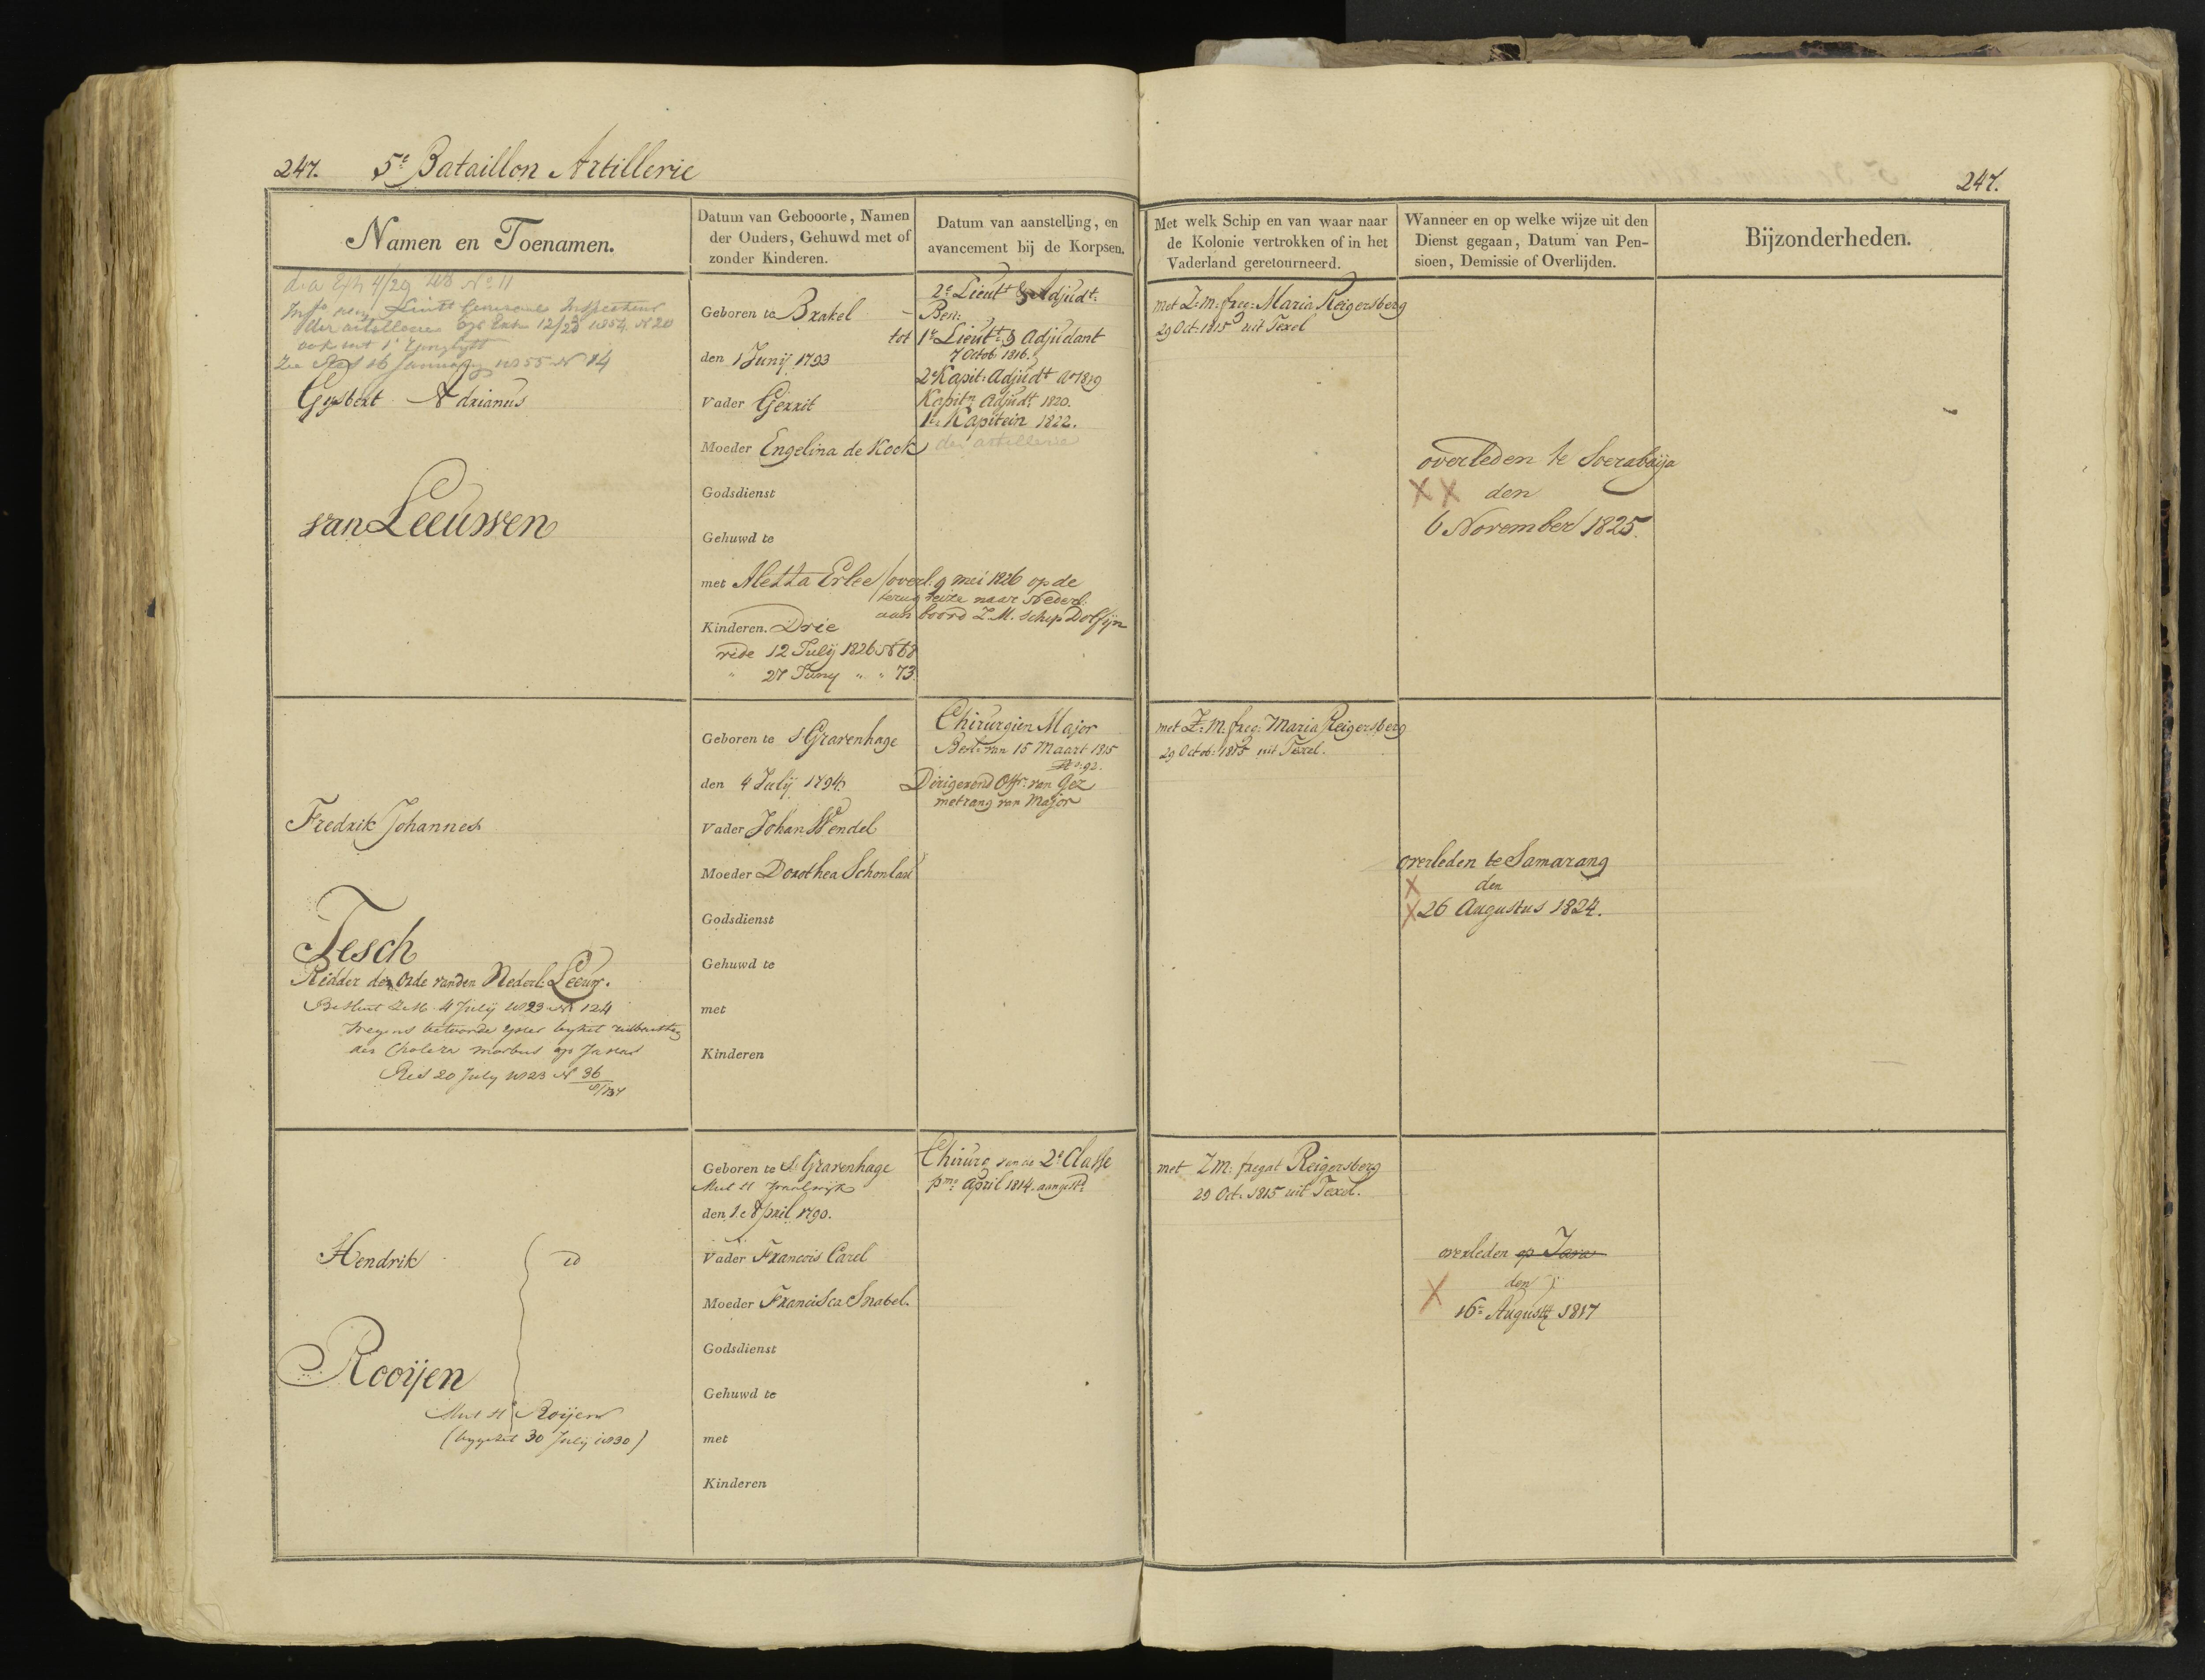 247. 5e Bataillon Artillerie
247.
Namen en Toenamen.
Datum van Gebooorte, Namen
der Ouders, Gehuwd met of
zonder Kinderen.
Datum van aanstelling, en
avancement bij de Korpsen.
Met welk Schip en van waar naar
de Kolonie vertrokken of in het
Vaderland geretourneerd.
Wanneer en op welke wijze uit den
Dienst gegaan, Datum van Pen-
sioen, Demissie of Overlijden.
Bijzonderheden.
4/29 No 11
Luitt Generaal Inspecteur
der artillerie 12/23 1854 N 20
16 January 1855 N 14
Gysbert Adrianus
van Leeuwen
Geboren te Brakel
den 1 Junij 1793
Vader Gerrit
Moeder Engelina de Kock
Godsdienst
Gehuwd te
met Aletta Erlee / overl. 9 mei 1826 op de
terug reize naar Nederl:
aan boord Z.M. schip Dolfijn
Kinderen. Drie
vide 12 Julij 1826 N 68
" 27 Juny " " 73.
2e Lieutt & Adjudt:
Ben:
tot 1e Lieutt: & Adjudant
7 Octob 1816.
2e Kapit: Adjudt Ao 1819
Kapitn Adjudt 1820.
1e Kapitein 1822.
der artillerie
met Z:m: freg: Maria Reigersberg
29 Oct 1815 uit Texel
overleden te Soerabaija
XX den
6 November 1825.
Fredrik Johannes
Tesch
Ridder der Orde van den Nederl: Leeuw.
Besluit Z.M. 4 Julij 1823 N 124
Wegens betoonde yver by het
der Cholera morbus op Java
20 July 1823 N 36
Geboren te s'Gravenhage
den 4 Julij 1794
Vader Johan Wendel
Moeder Dorothea
Godsdienst
Gehuwd te
met
Kinderen
Chirurgien Major
Besl: van 15 Maart 1815
No: 92.
Dirigerend Offr: van Gez
met rang van Major
met Z:m: freg: Maria Reigersberg
29 Octob: 1815 uit Texel.
overleden te Samarang
X den
X 26 Augustus 1824.
Hendrik
Rooijen
Roijen
(bygezet 30 July 1830)
Geboren te s'Gravenhage
den 1e April 1790.
Vader Francois Carel
Moeder Francisca Snabel.
Godsdienst
Gehuwd te
met
Kinderen
Chirurg van de 2e Classe
pmo April 1814. aangest:
met Zm: fregat Reigersberg
29 Oct. 1815 uit Texel.
overleden op Java
X den
16e Augustt 1817